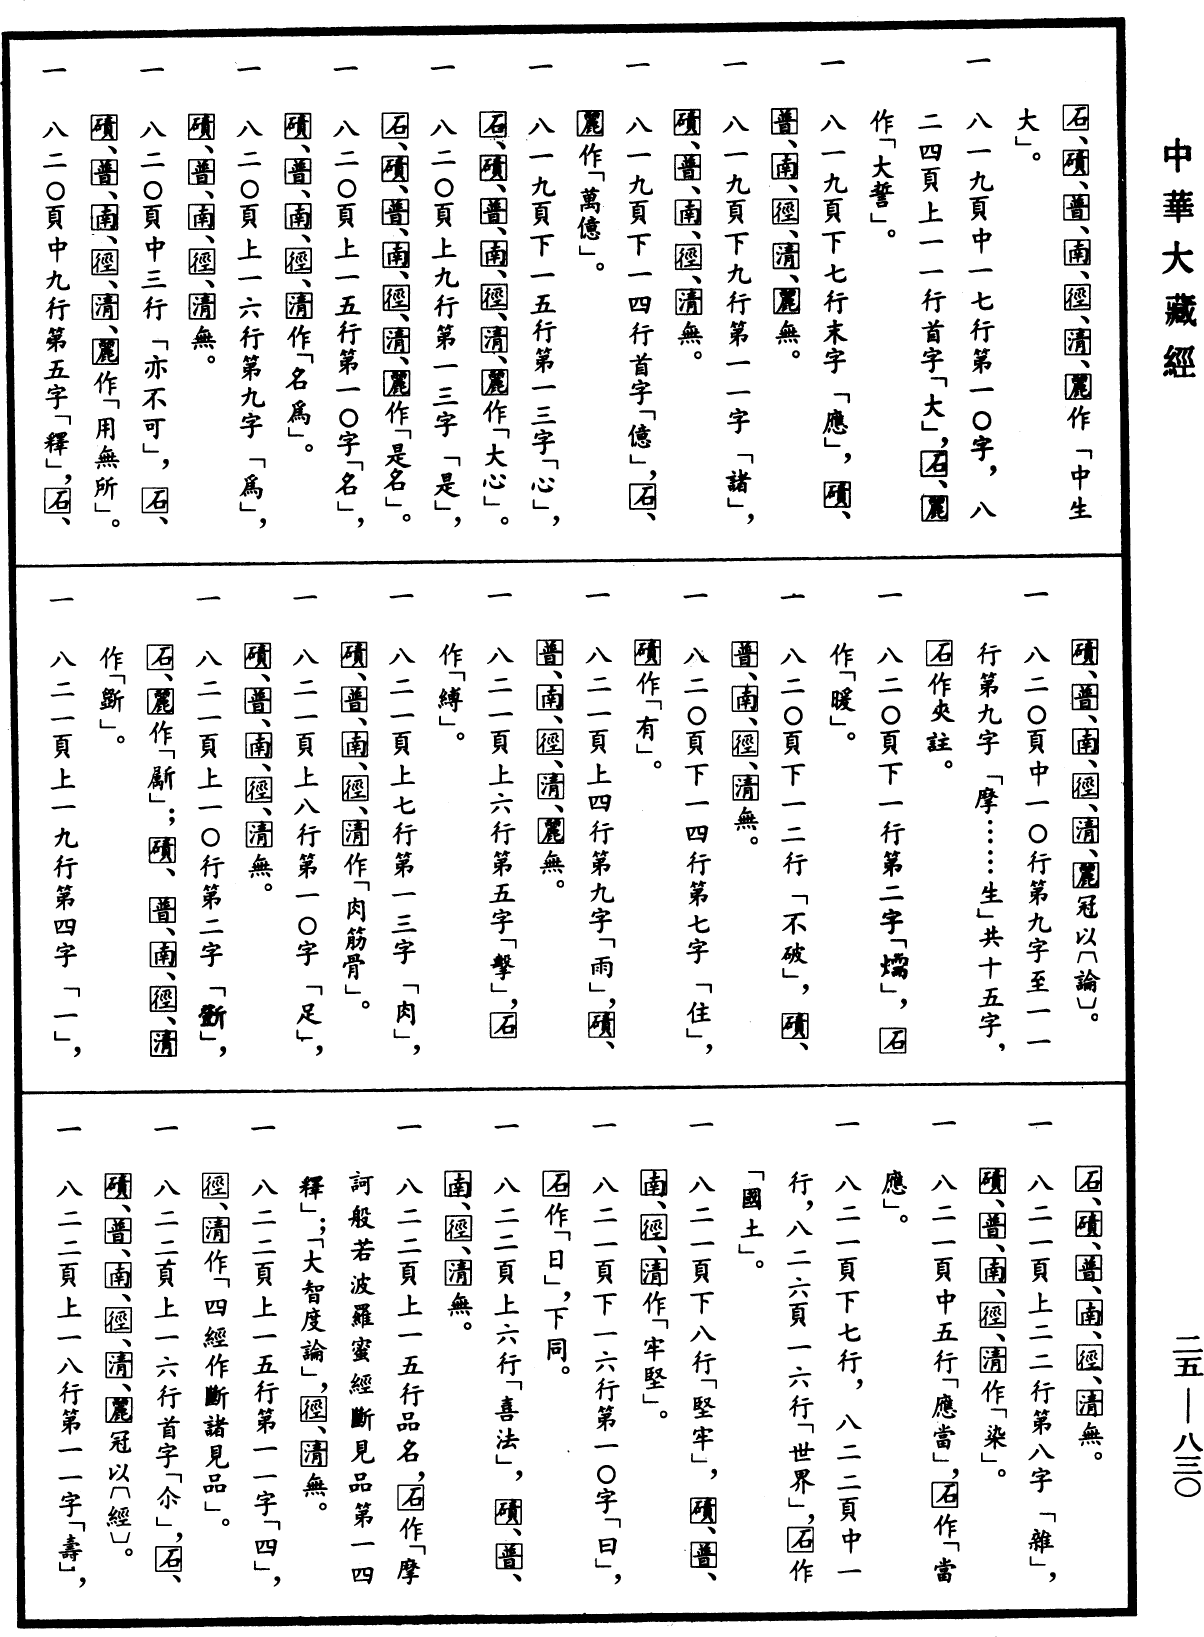 中華大藏經
二五—八三〇
石、磧、普、南、徑、清、麗作「中生
大」。
一 八一九頁中一七行第一〇字，八
二四頁上一一行首字「大」，石、麗
作「大誓」。
一 八一九頁下七行末字「應」，磧、
普、南、徑、清、麗無。
一 八一九頁下九行第一一字「諸」，
磧、普、南、徑、清無。
一 八一九頁下一四行首字「億」，石、
麗作「萬億」。
一 八一九頁下一五行第一三字「心」，
石、磧、普、南、徑、清、麗作「大心」。
一 八二〇頁上九行第一三字「是」，
石、磧、普、南、徑、清、麗作「是名」。
一 八二〇頁上一五行第一〇字「名」，
磧、普、南、徑、清作「名爲」。
一 八二〇頁上一六行第九字「爲」，
磧、普、南、徑、清無。
一 八二〇頁中三行「亦不可」，石、
磧、普、南、徑、清、麗作「用無所」。
一 八二〇頁中九行第五字「釋」，石、
磧、普、南、徑、清、麗冠以〔論〕。
一 八二〇頁中一〇行第九字至一一
行第九字「摩……生」共十五字，
石作夾註。
一 八二〇頁下一行第二字「燸」，石
作「暖」。
一 八二〇頁下一二行「不破」，磧、
普、南、徑、清無。
一 八二〇頁下一四行第七字「住」，
磧作「有」。
一 八二一頁上四行第九字「雨」，磧、
普、南、徑、清、麗無。
一 八二一頁上六行第五字「擊」，石
作「縛」。
一 八二一頁上七行第一三字「肉」，
磧、普、南、徑、清作「肉筋骨」。
一 八二一頁上八行第一〇字「足」，
磧、普、南、徑、清無。
一 八二一頁上一〇行第二字「斲」，
石、麗作「斸」；磧、普、南、徑、清
作「斵」。
一 八二一頁上一九行第四字「一」，
石、磧、普、南、徑、清無。
一 八二一頁上二二行第八字「雜」，
磧、普、南、徑、清作「染」。
一 八二一頁中五行「應當」，石作「當
應」。
一 八二一頁下七行，八二二頁中一
行，八二六頁一六行「世界」，石作
「國土」。
一 八二一頁下八行「堅牢」，磧、普、
南、徑、清作「牢堅」。
一 八二一頁下一六行第一〇字「曰」，
石作「日」，下同。
一 八二二頁上六行「喜法」，磧、普、
南、徑、清無。
一 八二二頁上一五行品名，石作「摩
訶般若波羅蜜經斷見品第一四
釋」；「大智度論」，徑、清無。
一 八二二頁上一五行第一一字「四」，
徑、清作「四經作斷諸見品」。
一 八二二頁上一六行首字「尒」，石、
磧、普、南、徑、清、麗冠以〔經〕。
一 八二二頁上一八行第一一字「壽」，